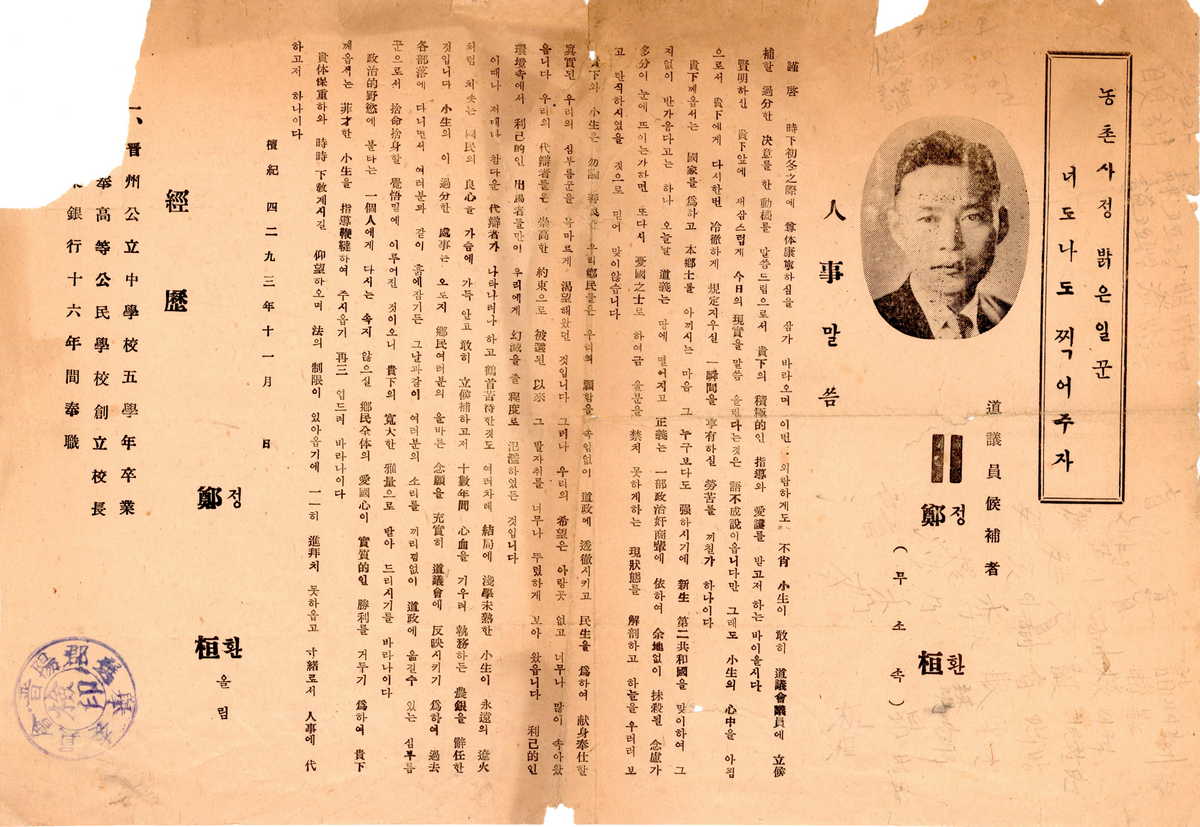 농촌사정 밝은일꾼
너도나도 찍어주자
道議員候補者
정 환
鄭 桓
(무소속)
人事말씀
謹啓 時下初冬之際에 尊体康寧하심을 삼가 바라오며 이번 외람하게도 不肖 小生이 敢히 道議會議員에 立候
補할 過分한 决意를 한 動機를 말씀드림으로서 貴下의 積極的인 指導와 愛護를 받고저 하는 바이올시다
賢明하신 貴下앞에 새삼스럽게 今日의 現實을 말씀 올린다는것은 語不成說이옵니다만 그래도 小生의 心中을 아룀
으로서 貴下에게 다시한번 冷徹하게 規定지우실 一瞬間을 享有하실 勞苦를 끼칠가 하나이다
貴下께옵서는 國家를 爲하고 本鄕土를 아끼시는 마음 그 누구보다도 强하시기에 新生 第二共和國을 맞이하여 그
지없이 반가웁다고는 하나 오늘날 道義는 땅에 떨어지고 正義는 一部政治奸商輩에 依하여 余地없이 抹殺된 念慮가
多分이 눈에 뜨이는가하면 또다시 憂國之士로 하여금 울분을 禁치 못하게하는 現狀態를 解剖하고 하늘을 우러러 보
고 탄식하시였을 것으로 믿어 맞이않습니다
下와 小生은 勿論 善良한 우리鄕民들은 우리의 願함을 속임없이 道政에 透徹시키고 民生을 爲하여 献身奉仕할
眞實된 우리의 심부름군을 목마르게 渴望해왔던 것입니다 그러나 우리의 希望은 아랑곳 없고 너무나 많이 속아왔
읍니다 우리의 代辯者들은 崇高한 約束으로 被選된 以來 그 발자취를 너무나 뚜렸하게 보아 왔읍니다 利己的인
環境속에서 利己的인 出馬者들만이 우리에게 幻滅을 줄 程度로 氾濫하였든 것입니다
이때나 저때나 참다운 代辯者가 나타나려나 하고 鶴首苦待한것도 여러차례 結局에 淺學未熟한 小生이 永遠의 遼火
처럼 치솟는 國民의 良心을 가슴에 가득 안고 敢히 立候補하고저 十數年間 心血을 기우려 執務하든 農銀을 辭任한
것입니다 小生의 이 過分한 處事는 오도지 鄕民여러분의 올바른 念願을 充實히 道議會에 反映시키기 爲하여 過去
各部落에 다니면서 여러분과 같이 흙에잠기든 그날과같이 여러분의 소리를 끼리낌없이 道政에 옮길수 있는 심부름
군으로서 捨命捨身할 覺悟밑에 이루어진 것이오니 貴下의 寬大한 雅量으로 받아 드리시기를 바라나이다
政治的野慾에 불타는 一個人에게 다시는 속지 않으실 鄕民全体의 愛國心이 實質的인 勝利를 거두기 爲하여 貴下
께옵서는 菲才한 小生을 指導鞭韃하여 주시옵기 再三 업드려 바라나이다
貴体保重하와 時時下敎게시길 仰望하오며 法의 制限이 있아옵기에 一一히 進拜치 못하옵고 寸緖로서 人事에 代
하고저 하나이다
檀紀 四二九三年十一月 日
정 환
鄭 桓 올림
經歷
一、晋州公立中學校五學年卒業
高等公民學校創立校長
銀行十六年間奉職
檢印